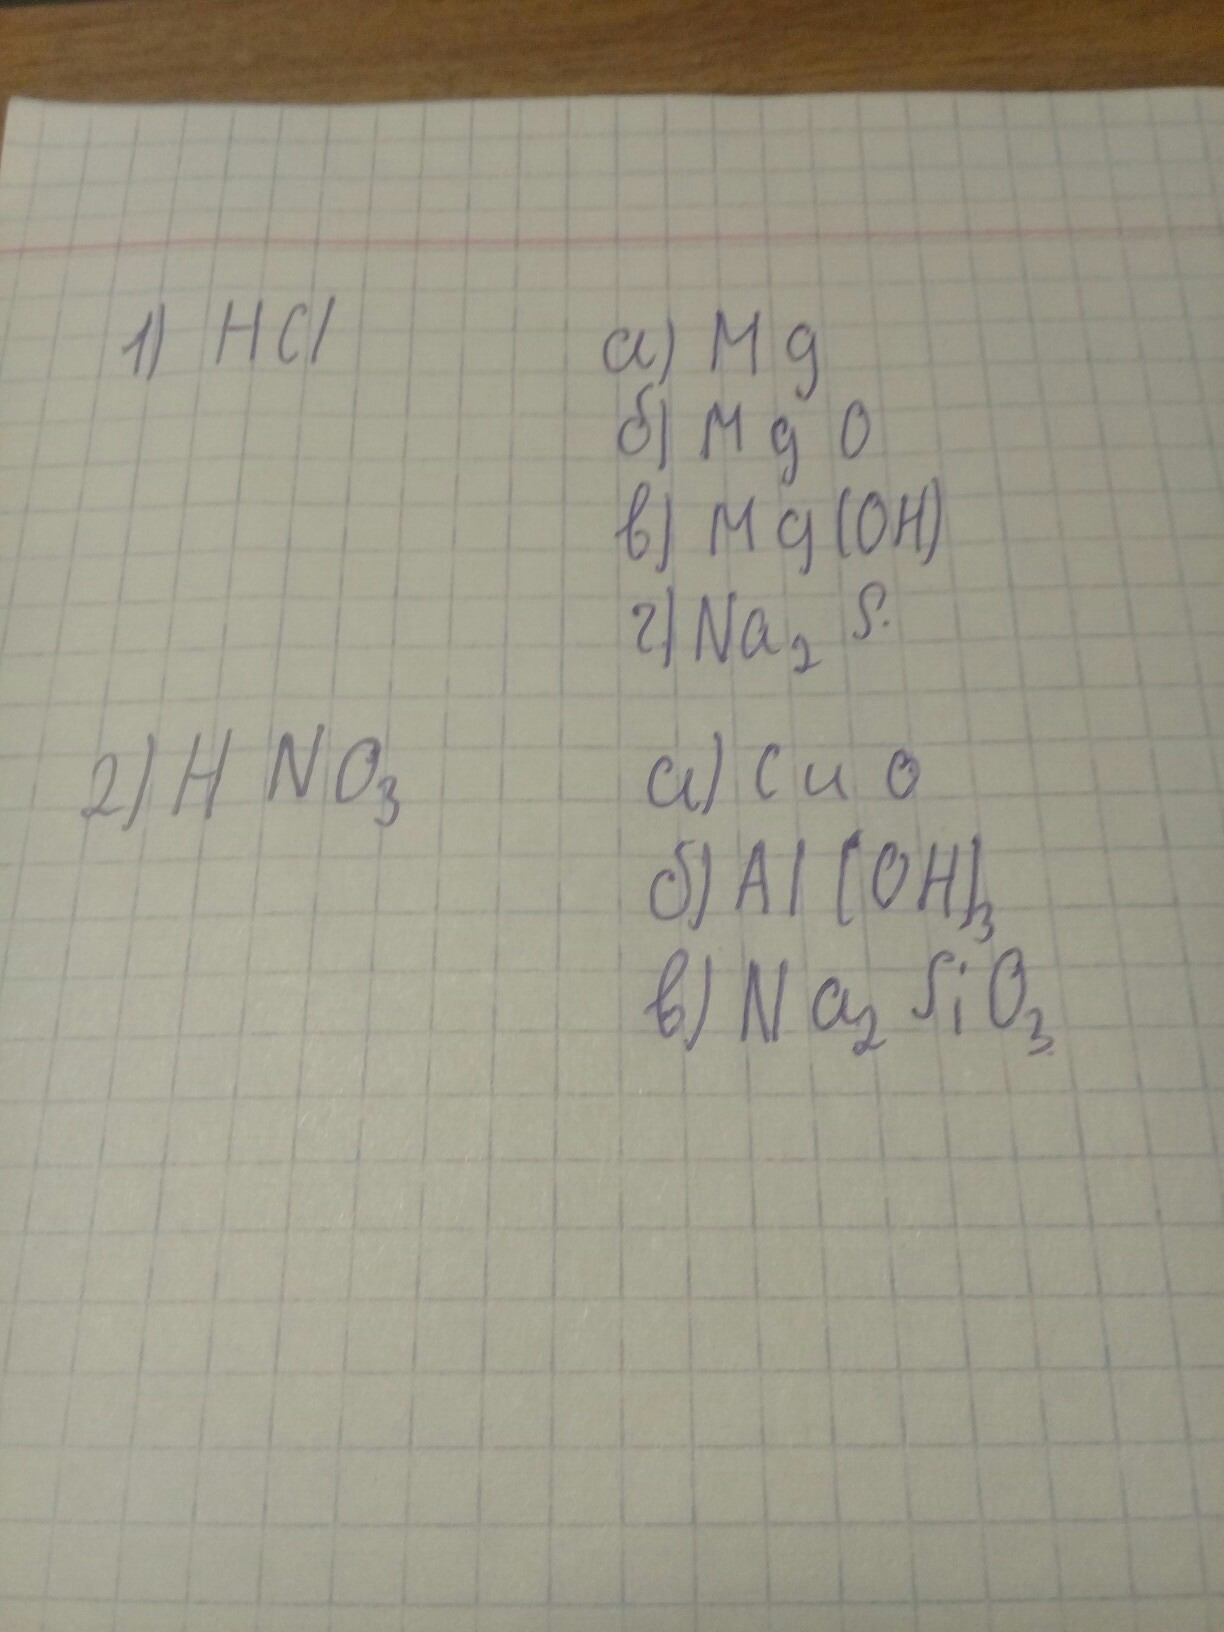 1) HCl а) Mg
б) MgO
в) Mg(OH)
г) Na₂S.
2) HNO₃ а) CuO
б) Al(OH)₃
в) Na₂SiO₃